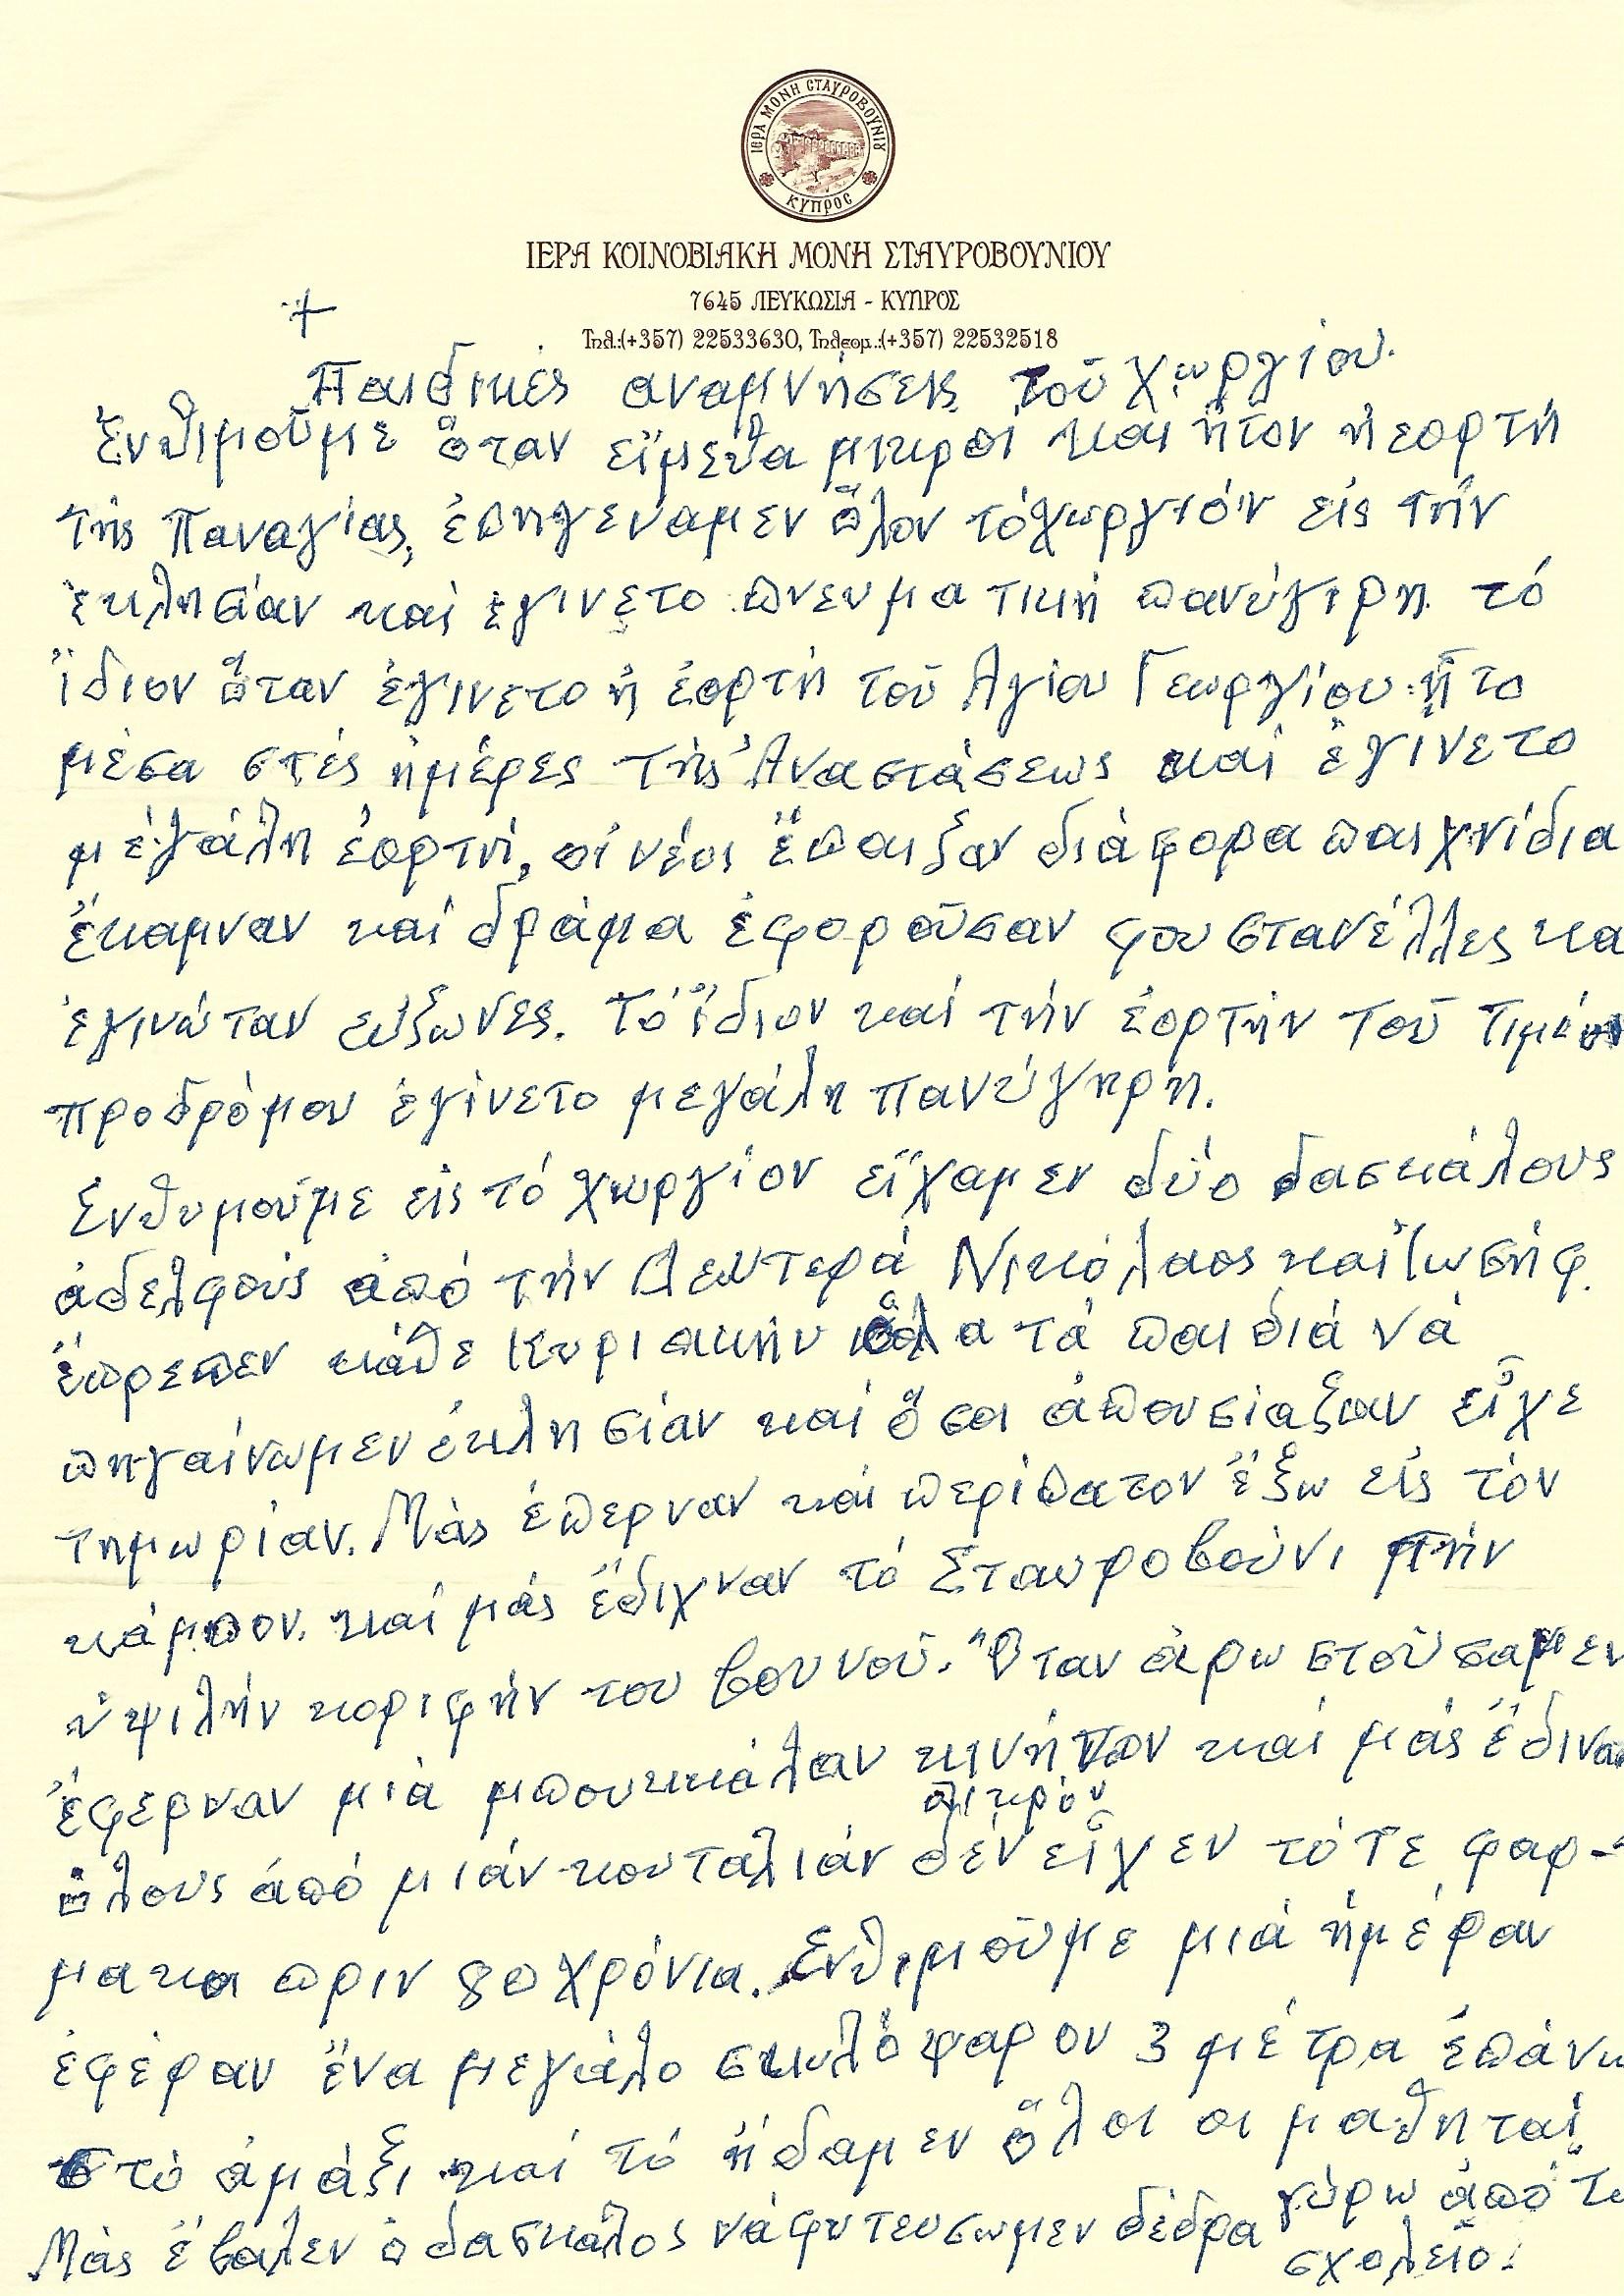 ΙΕΡΑ ΜΟΝΗ ΣΤΑΥΡΟΒΟΥΝΙΟΥ
ΚΥΠΡΟΣ
ΙΕΡΑ ΚΟΙΝΟΒΙΑΚΗ ΜΟΝΗ ΣΤΑΥΡΟΒΟΥΝΙΟΥ
7645 ΛΕΥΚΩΣΙΑ - ΚΥΠΡΟΣ
Τηλ.:(+357) 22533630, Τηλεομ.:(+357) 22532518
+
Παιδικές αναμνήσεις τοῦ χωργίου.
Ἐνθιμοῦμε ὅταν εἴμεθα μικροί και ἦτον ἡ εορτή
τῆς Παναγίας, ἐπηγεναμεν ὅλον τό χωργιόν εἰς τήν
ἐκλησίαν καί ἐγινετο πνευματική πανύγιρη τό
ἴδιον ὅταν ἐγινετο ἡ ἑορτή τοῦ Αγίου Γεωργίου ἦτο
μέσα στές ἡμέρες τῆς Ἀναστάσεως καί ἐγίνετο
μεγάλη ἑορτή, οἱ νέοι ἔπαιξαν διάφορα παιχνίδια
ἔκαμναν καί δράμα ἐφοροῦσαν φουστανέλλες κα
ἐγινώταν εὐξωνες. Τό ἴδιον καί τήν ἑορτήν τοῦ Τιμίου
προδρόμου ἐγίνετο μεγάλη πανύγηρη.
Ενθυμούμε εἰς τό χωργίον εἴχαμεν δύο δασκάλους
ἀδελφούς ἀπό τήν Λευτερά Νικόλαος καί Ἰωσήφ.
ἔπρεπεν κάθε Κυριακήν ὅλα τά παιδιά νά
πηγαίνωμεν ἐκλησίαν καί ὅσοι ἀπουσίαζαν εἶχε
τημωρίαν. Μᾶς ἐπερναν καί περίπατον ἔξω εἰς τόν
κάμπον. καί μᾶς ἔδιχναν τό Σταυροβούνι τήν
ὑψιλήν κοριφήν του βουνοῦ. Ὅταν ἀρωστοῦσαμεν
ἔφερναν μιά μπουκκάλαν κινῆνον καί μᾶς ἔδιναν
πικρόν
ὅλους ἀπό μιάν κουταλιάν δέν εἶχεν τότε φαρ-
μακα πριν 80 χρόνια. Ἐνθιμοῦμε μιά ἡμέραν
ἐφέραν ἕνα μεγάλο σκυλόψαρον 3 μέτρα ἐπάνω
στό ἁμάξι καί τό ἤδαμεν ὅλοι οι μαθηταί
Μᾶς ἔβαλεν ὁ δασκάλος νά φυτευσωμεν δέδρα γύρω ἀπό τω
σχολεῖο.